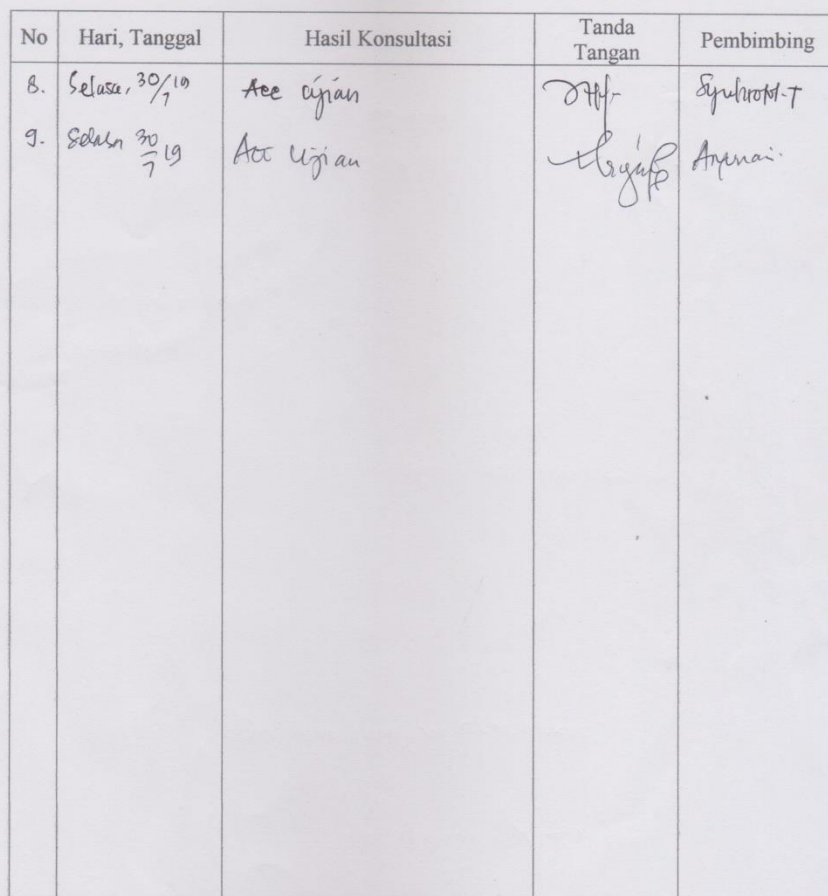 No Hari, Tanggal Hasil Konsultasi Tanda Tangan Pembimbing
8. Selasa, 30/7 19 Acc Ujian
9. Selasa 30/7 19 Acc Ujian